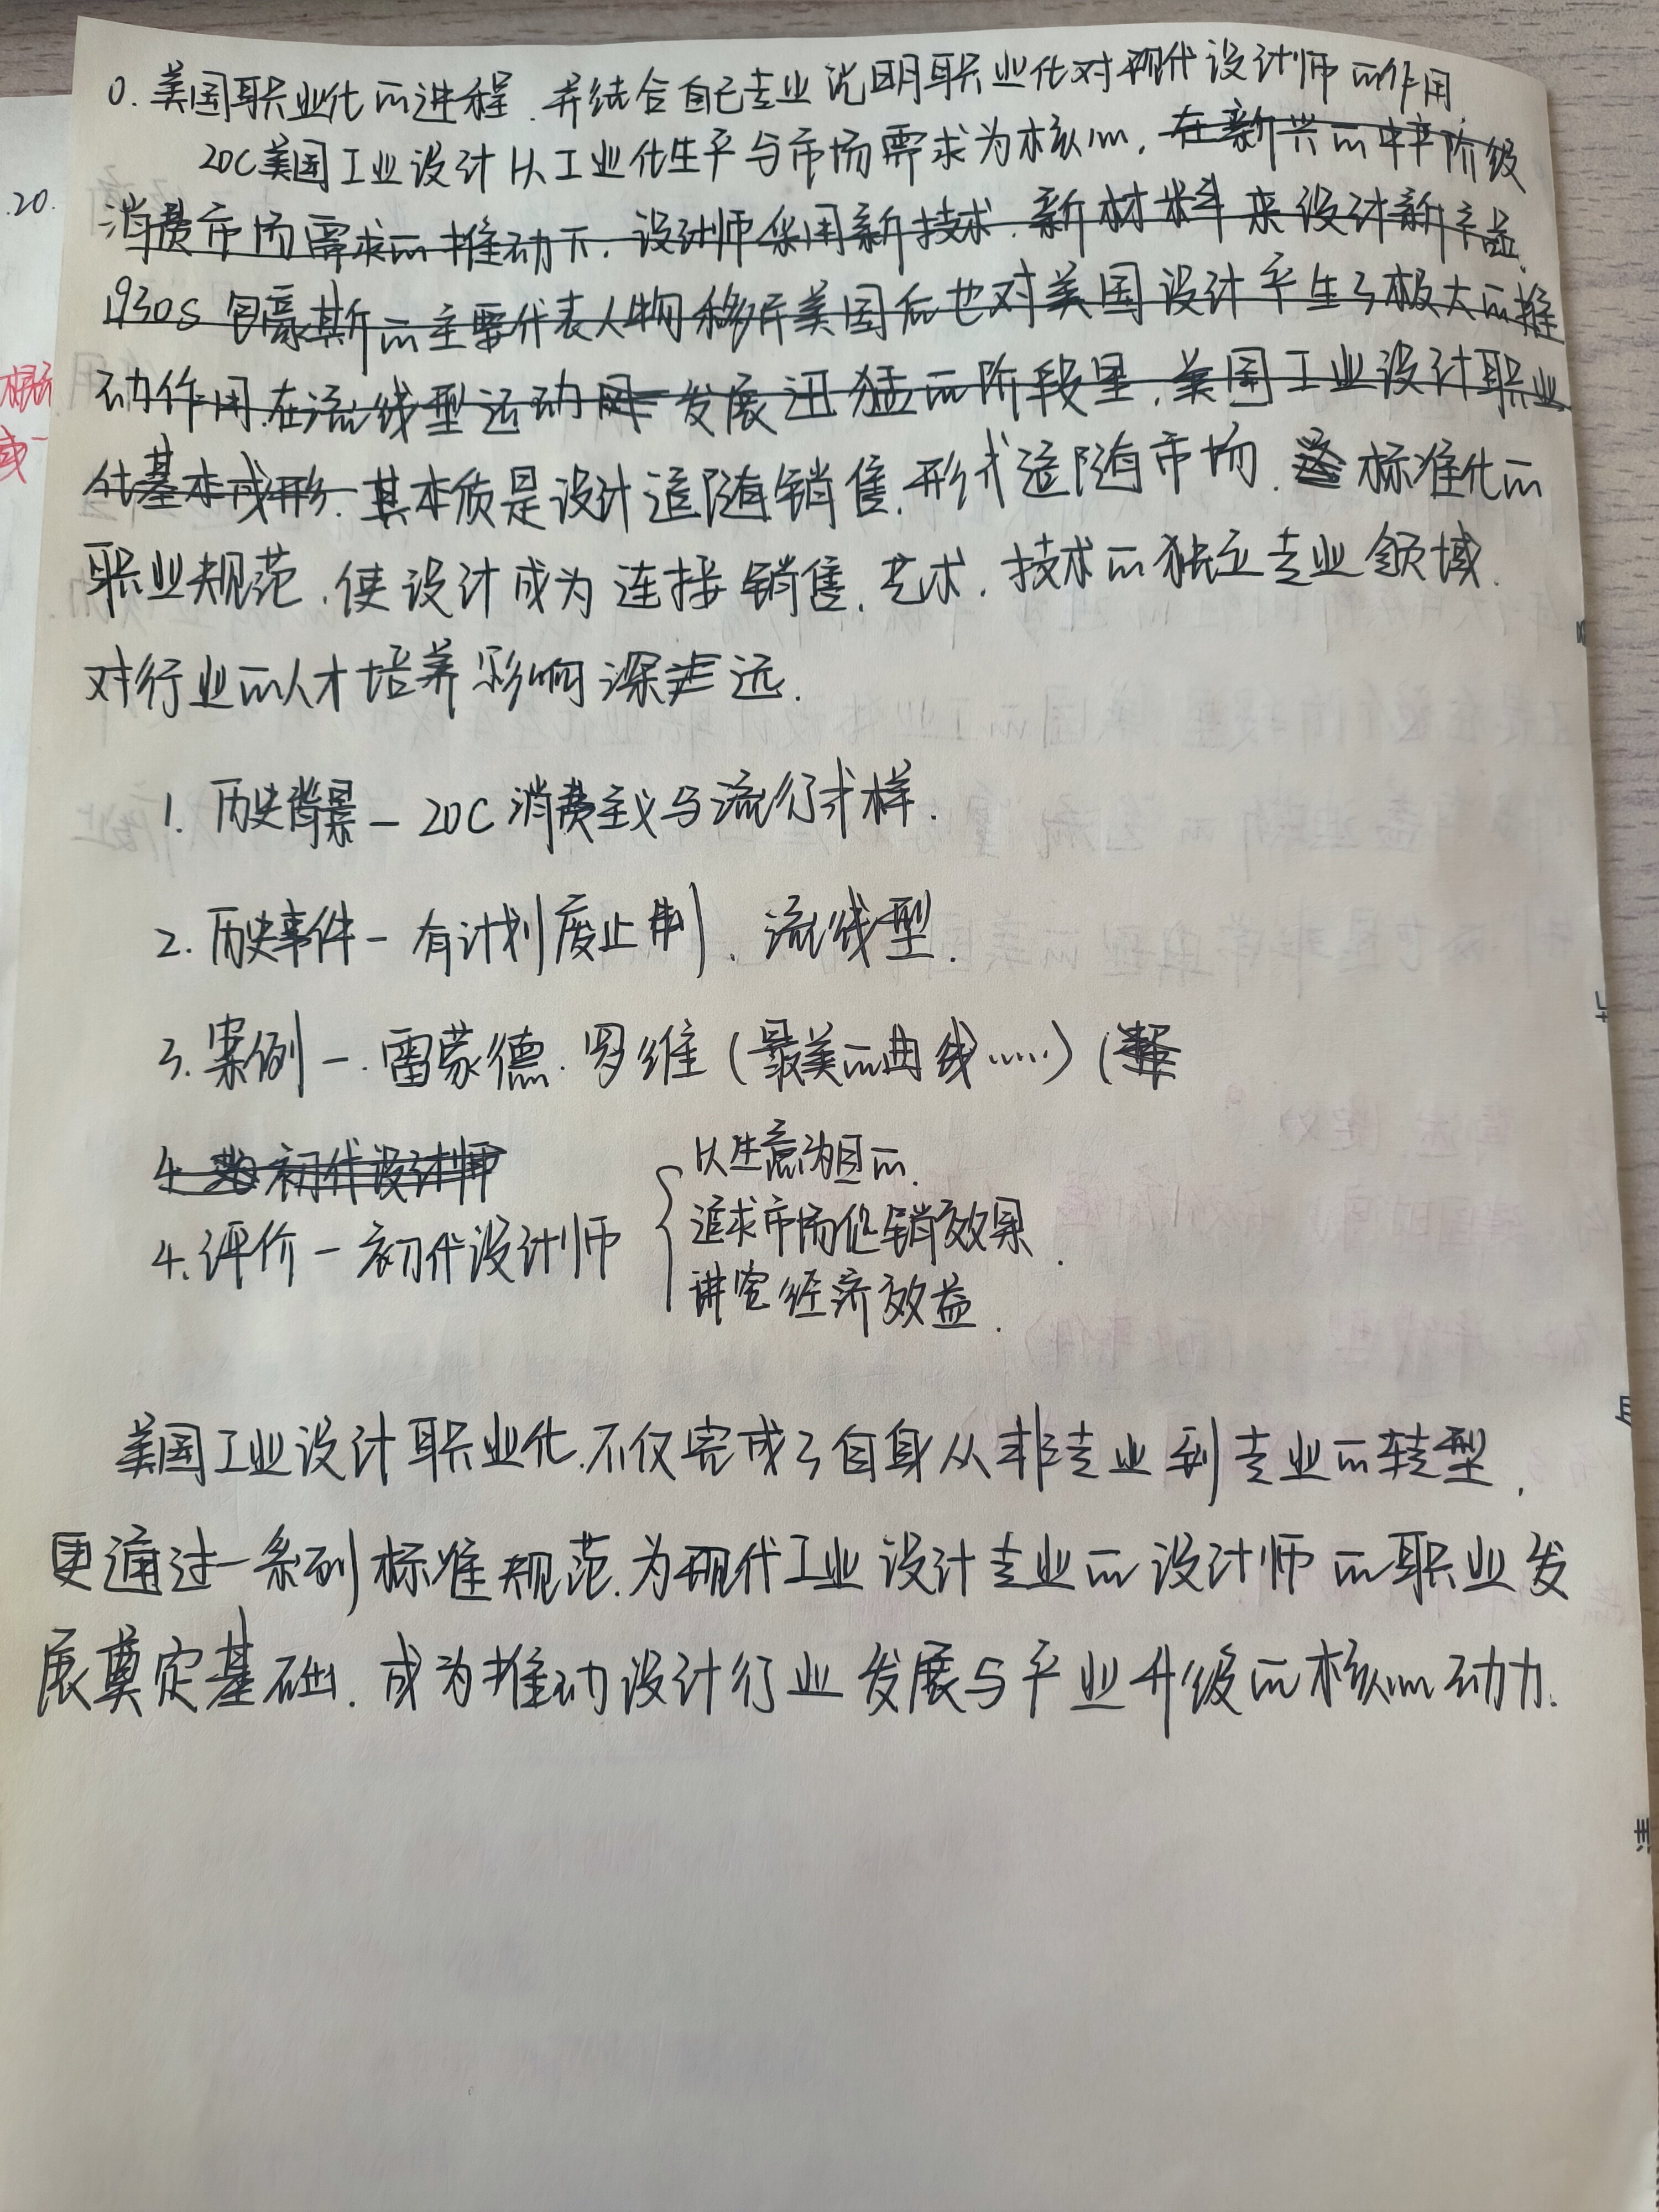 0. 美国职业化的进程.并结合自己专业说明职业化对现代设计师的作用
20C美国工业设计以工业化生产与市场需求为核心,在新兴的中产阶级
消费市场需求的推动下.设计师采用新技术.新材料来设计新产品.
1930s包豪斯的主要代表人物移居美国后也对美国设计产生了极大的推
动作用.在流线型运动 发展迅猛的阶段里,美国工业设计职业
化基本成形.其本质是设计追随销售.形式追随市场. 标准化的
职业规范.使设计成为连接销售.艺术.技术的独立专业领域.
对行业的人才培养影响深远.
1. 历史背景-20C消费主义与流行式样.
2. 历史事件-有计划废止制、流线型.
3. 案例-.雷蒙德.罗维(最美的曲线……)(
4. 初代设计师
4.评价-初代设计师
以生意为目的.
追求市场促销效果.
讲究经济效益.
美国工业设计职业化.不仅完成了自身从非专业到专业的转型,
更通过一系列标准规范.为现代工业设计专业的设计师的职业发
展奠定基础.成为推动设计行业发展与产业升级的核心动力.
.20.